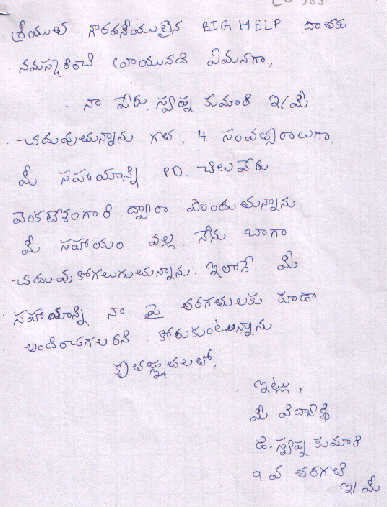 గౌరవనీయులైన BIG HELP వారికి
నమస్కరించి వ్రాయునది ఏమనగా,
నా పేరు. స్వప్న కుమారి ఇ/మీ
చదువుచున్నాను గత. 4 సంవత్సరాలుగా
మీ సహాయాన్ని P.D.
వెంకటేశంగారి ద్వారా పొందుచున్నాను
మీ సహాయం వల్ల. నేను బాగా
చదువుకోగలుగుచున్నాను. ఇలాగే మీ
సహాయాన్ని నా పై తరగతులకు కూడా
కోరుకుంటున్నాను
కృతజ్ఞతలతో.
ఇట్లు,
మీ విద్యార్థి
జి. స్వప్న కుమారి
9 వ తరగతి
ఇ/మీ